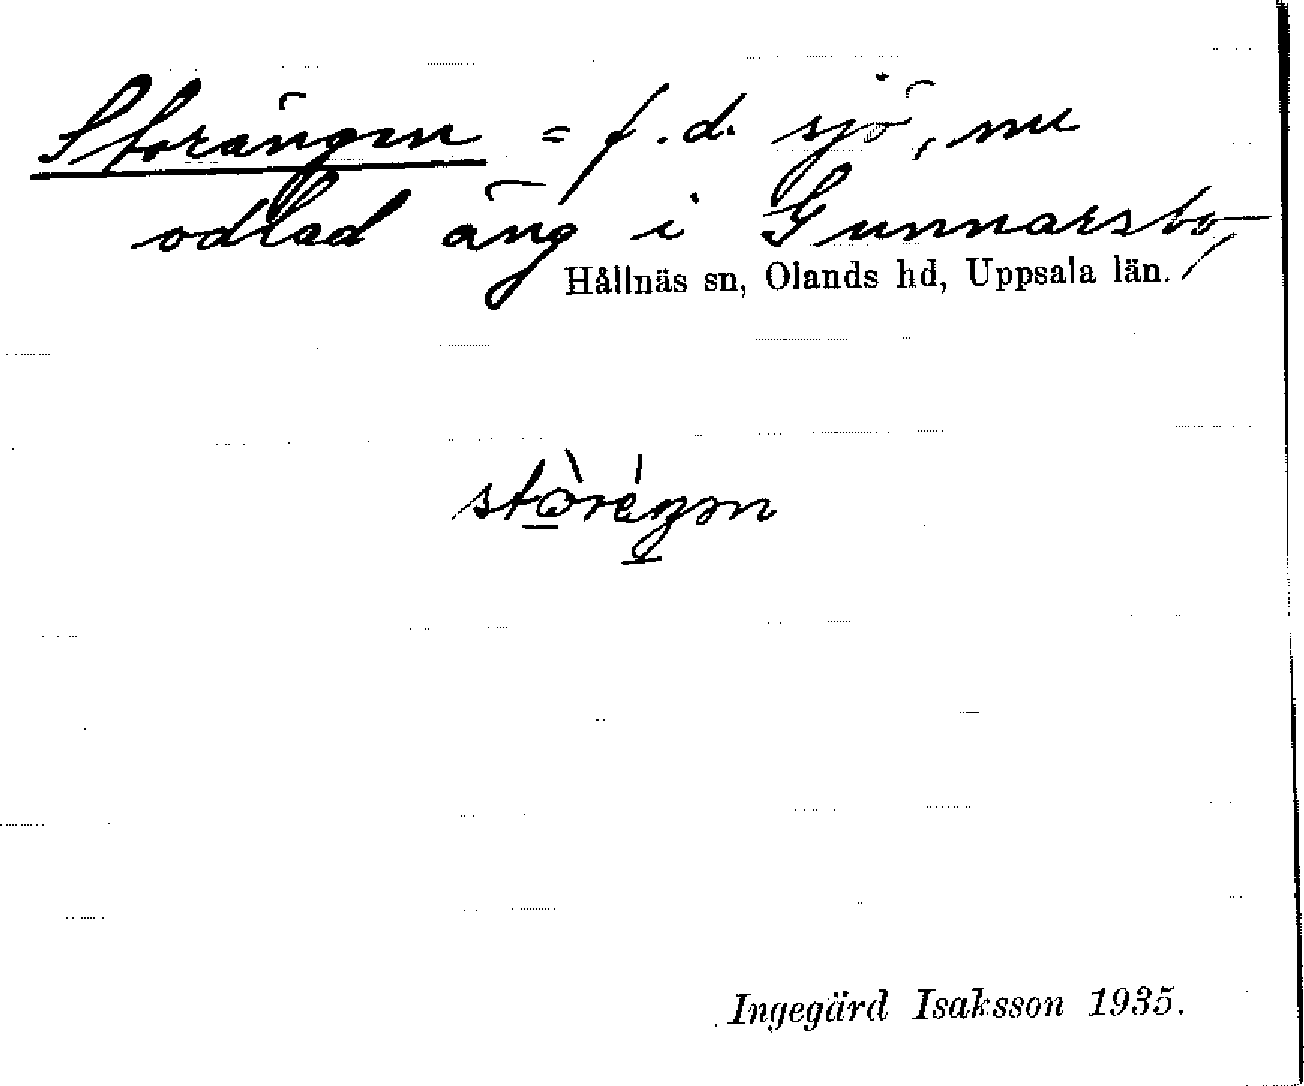 Storängen = f.d. sjö, nu
odlad äng i Gunnarsbo,
Hållnäs sn, Olands hd, Uppsala län.
Ingegärd Isaksson 1935.